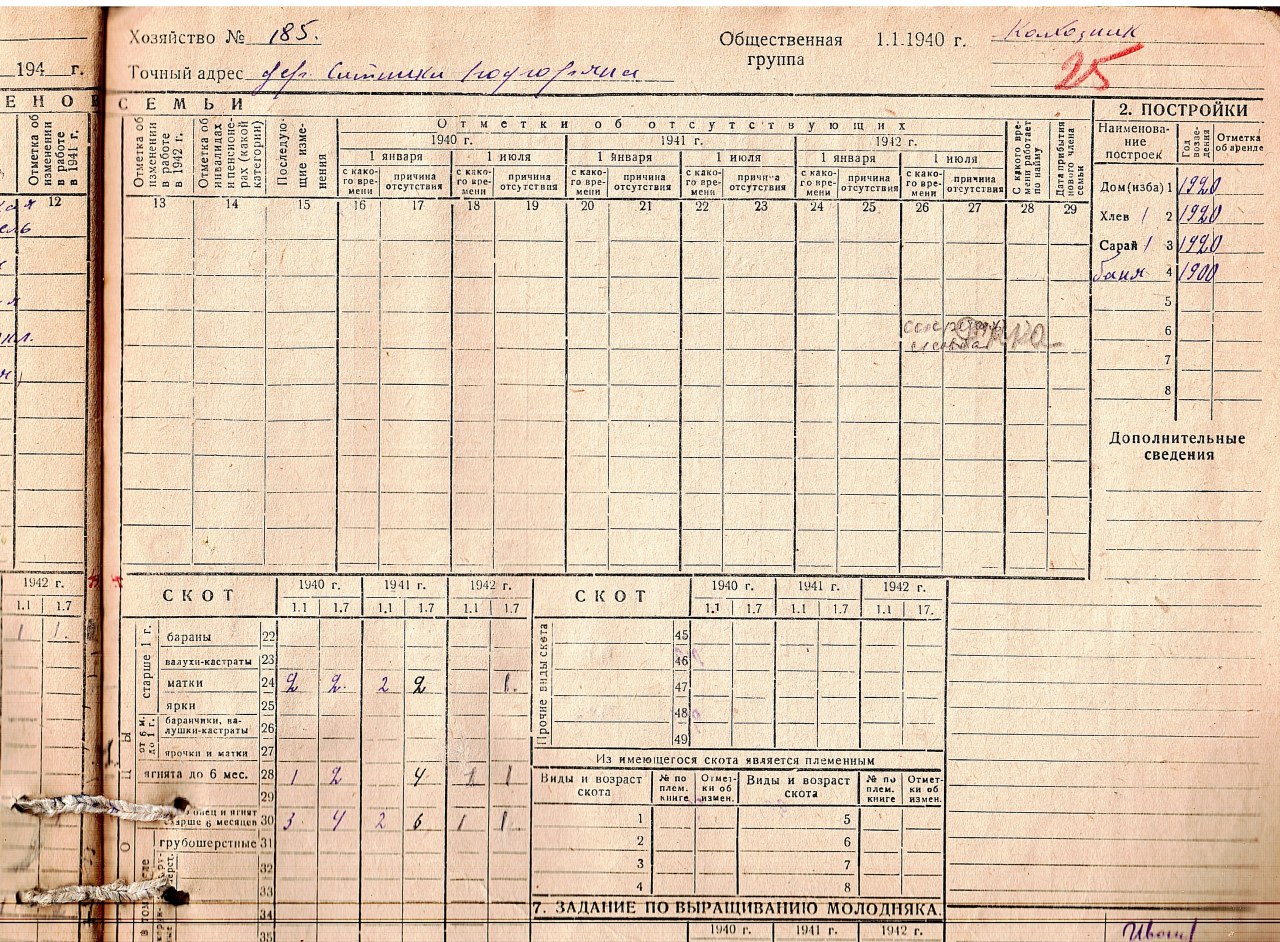 Хозяйство № 185.
Общественная группа 1.1.1940 г. Колхозник
25
194 г.
Точный адрес дер.
ЕНОВ СЕМЬИ
2. ПОСТРОЙКИ
Отметка об изменении в работе в 1941 г.
Отметка об изменении в работе в 1942 г.
Отметка об инвалидах и пенсионерах (какой категории)
Последующие изменения
Отметки об отсутствующих
1940 г. 1941 г. 1942 г.
1 января 1 июля 1 января 1 июля 1 января 1 июля
с какого времени причина отсутствия с какого времени причина отсутствия с какого времени причина отсутствия с какого времени причина отсутствия с какого времени причина отсутствия с какого времени причина отсутствия
С какого времени работает по найму
Дата прибытия нового члена семьи
12 13 14 15 16 17 18 19 20 21 22 23 24 25 26 27 28 29
Наименование построек Год возведения Отметка об аренде
Дом (изба) 1 1920
Хлев 1 2 1920
Сарай 1 3 1920
баня 4 1900
5
6
7
8
РККА
Дополнительные сведения
1942 г.
1.1 1.7
1 1.
СКОТ 1940 г. 1941 г. 1942 г.
1.1 1.7 1.1 1.7 1.1 1.7
ОВЦЫ
старше 1 г.
бараны 22
валухи-кастраты 23
матки 24 2 2. 2 2 1.
ярки 25
от 6 м. до 1 г.
баранчики, валушки-кастраты 26
ярочки и матки 27
ягнята до 6 мес. 28 1 2 4 1 1
29
овец и ягнят старше 6 месяцев 30 3 4 2 6 1 1.
грубошерстные 31
32
33
34
35
СКОТ 1940 г. 1941 г. 1942 г.
1.1 1.7 1.1 1.7 1.1 17.
Прочие виды скота
45
46
47
48
49
Из имеющегося скота является племенным
Виды и возраст скота № по плем. книге Отметки об измен. Виды и возраст скота № по плем. книге Отметки об измен.
1 5
2 6
3 7
4 8
7. ЗАДАНИЕ ПО ВЫРАЩИВАНИЮ МОЛОДНЯКА.
1940 г. 1941 г. 1942 г.